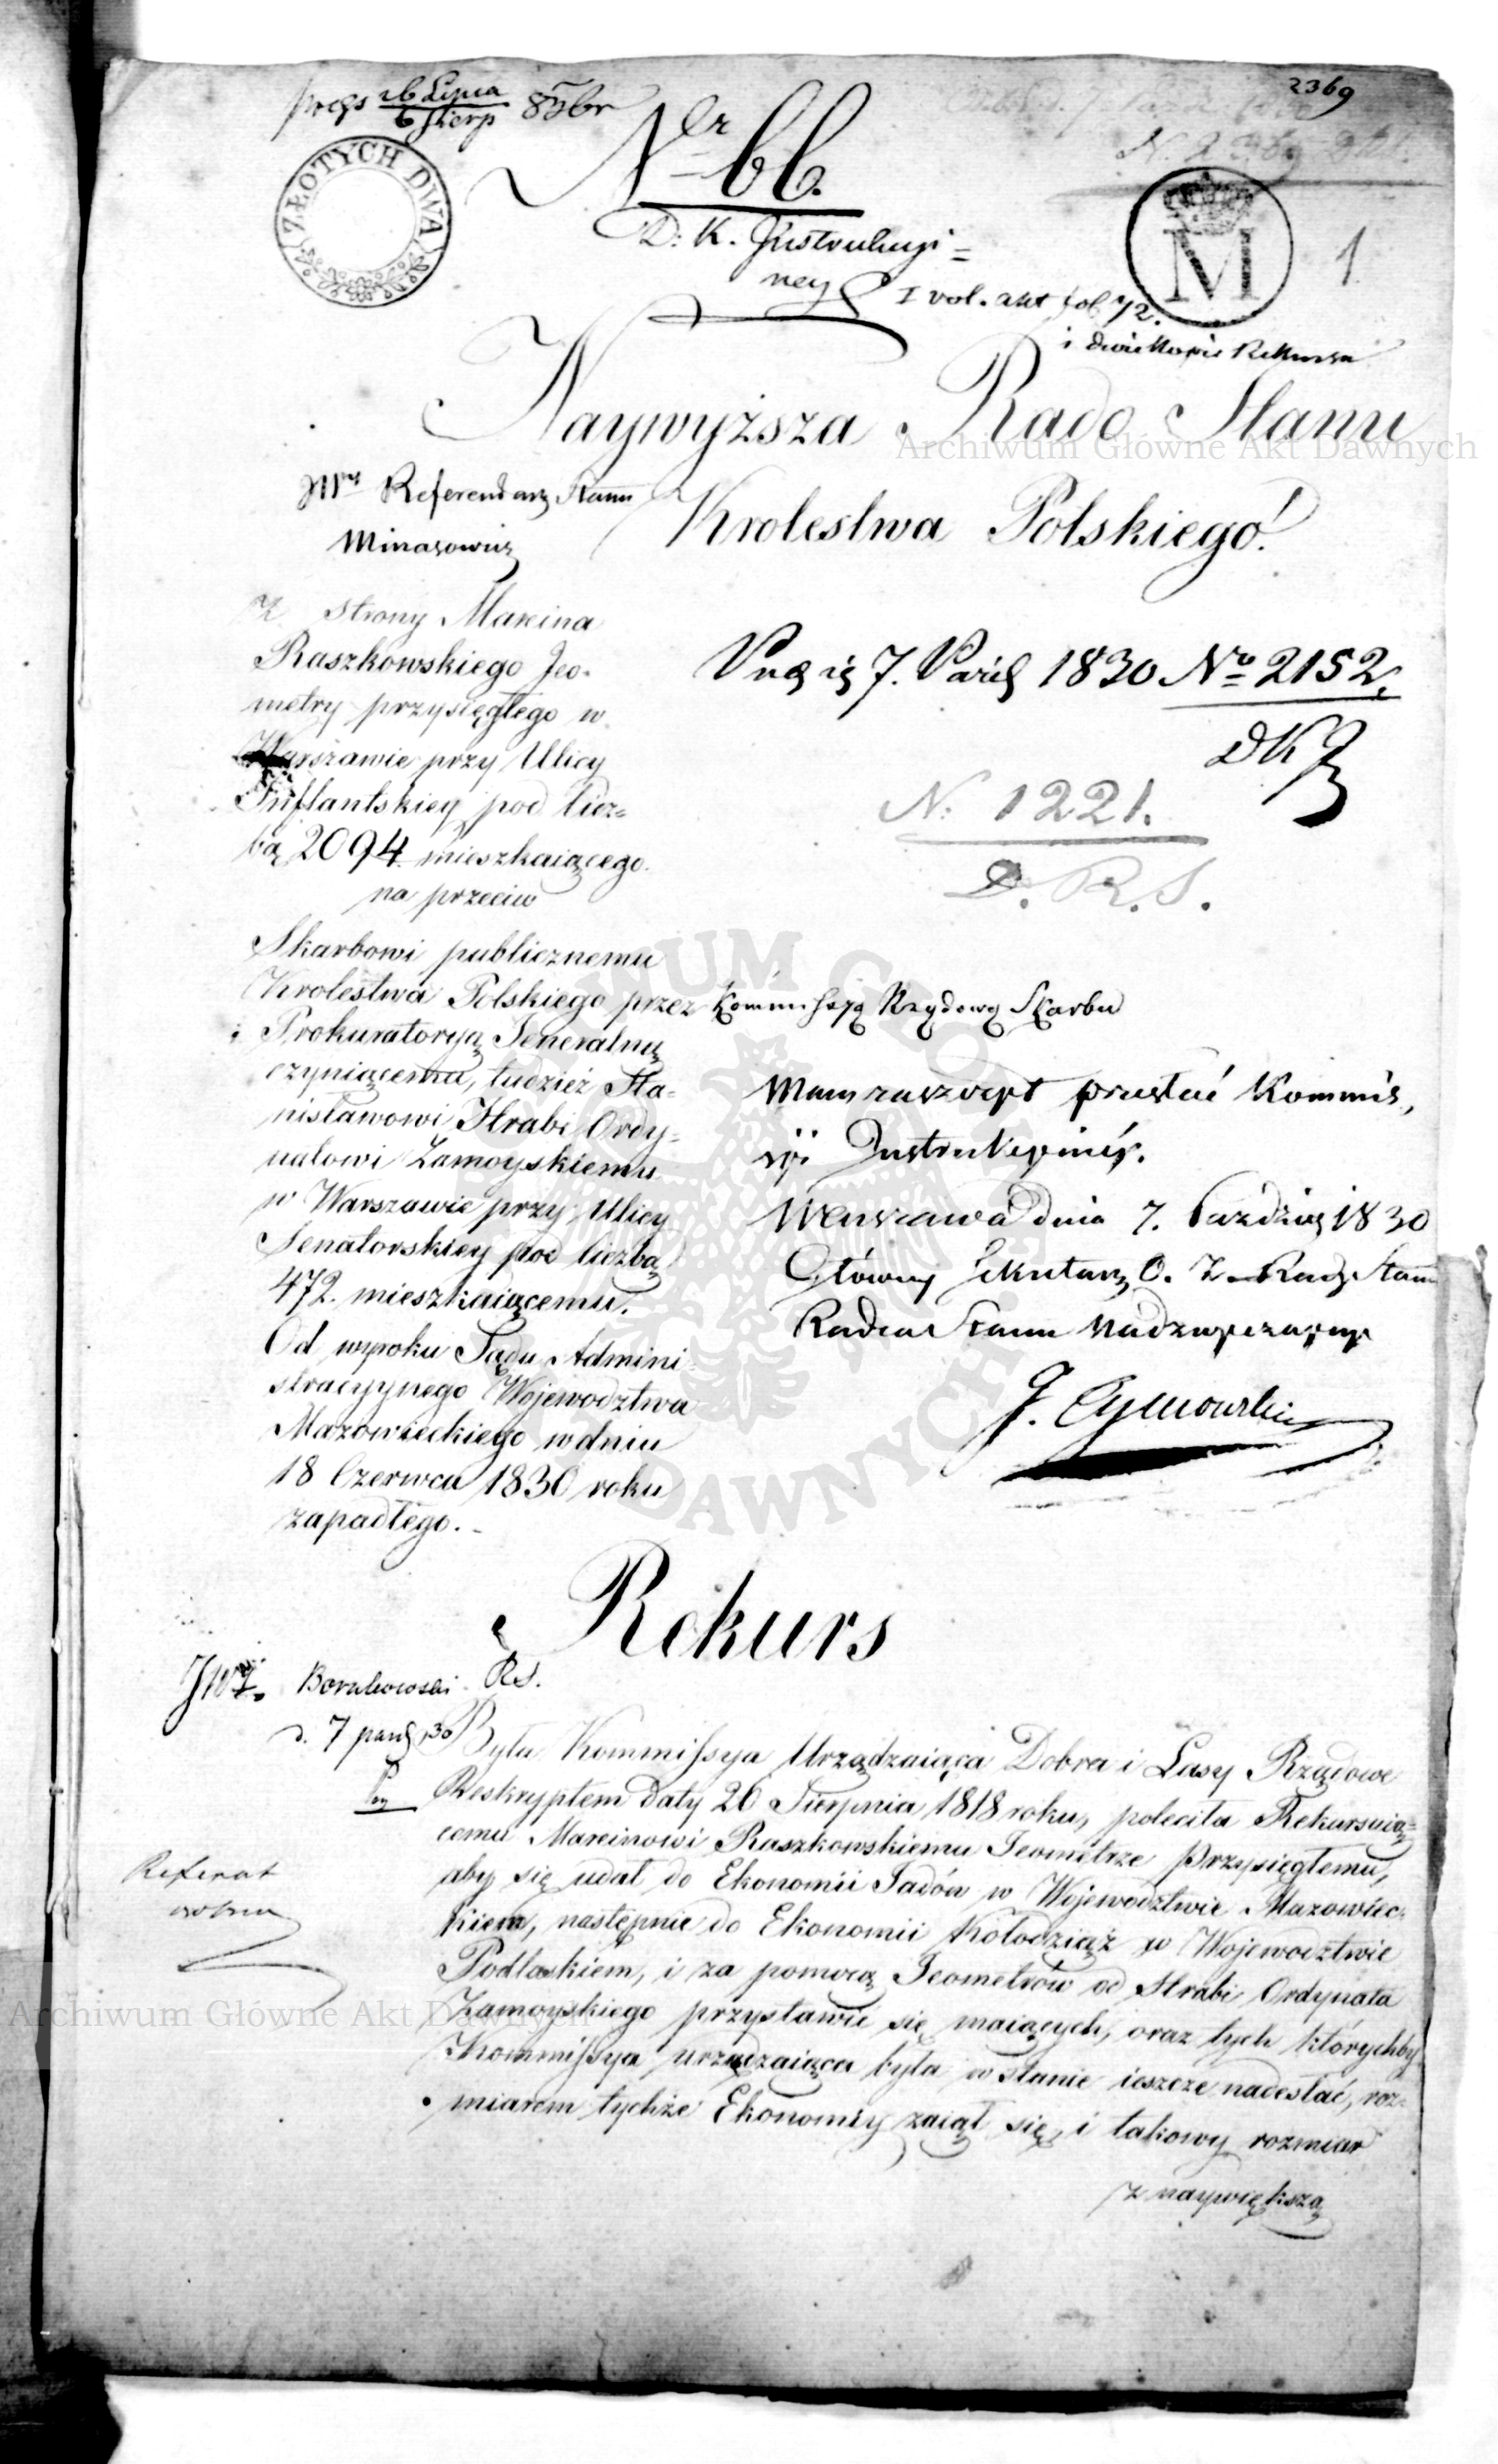 2369
26 Lipca
6 Sierp
ZŁOTYCH DWA
Ner 66.
D: K. Instrukcyi=
ney
M
1
I vol. akt fol. 72.
i dwie kopie Rekursu
Naywyższa Rado Stanu
Krolestwa Polskiego!
Referendarz Stanu
Minasowicz
Z strony Marcina
Raszkowskiego Jeo-
metry przysięgłego w
Warszawie przy Ulicy
Inflantskiey pod licz=
bą 2094 mieszkaiącego
na przeciw
7. Paźdz 1830 No 2152.
DK
N. 1221.
D. R. S.
Skarbowi publicznemu
Krolestwa Polskiego przez Kommissyą Rządową Skarbu
i Prokuratoryą Jeneralną
czyniącemu, tudzież Sta=
nisławowi Hrabi Ordy=
natowi Zamoyskiemu
w Warszawie przy Ulicy
Senatorskiey pod liczbą
472. mieszkaiącemu.
Od wyroku Sądu Admini
stracyynego Województwa
Mazowieckiego w dniu
18 Czerwca 1830 roku
zapadłego.
przesłać Kommis,
syi Instrukcyinéy.
Warszawa dnia 7. Paździer 1830
Główny Sekretarz O. Z. Rady Stanu
Radca Stanu Nadzwyczayny
Rekurs
JW. Borakowski R.S.
d. 7 paźdz 30
Referat
Była Kommissya Urządzaiąca Dobra i Lasy Rządowe
Reskryptem daty 26 Sierpnia 1818 roku, poleciła Rekursuią=
cemu Marcinowi Raszkowskiemu Jeometrze Przysięgłemu,
aby się udał do Ekonomii Jadów w Województwie Mazowiec-
kiem, następnie do Ekonomii Kołodziąż w Województwie
Podlaskiem, i za pomocą Jeometrów od Hrabi Ordynata
Zamoyskiego przystawić się maiących, oraz tych którychby
Kommissya urządzaiąca była w stanie ieszcze nadesłać, roz-
miarem tychże Ekonomiy zaiął się, i takowy rozmiar
z naywiększą
Archiwum Główne Akt Dawnych
Archiwum Główne Akt Dawnych